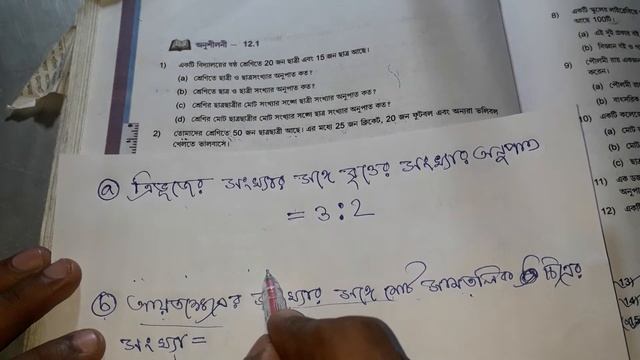 অনুশীলনী – 12.1
1) একটি বিদ্যালয়ের ষষ্ঠ শ্রেণিতে 20 জন ছাত্রী এবং 15 জন ছাত্র আছে।
(a) শ্রেণিতে ছাত্রী ও ছাত্রসংখ্যার অনুপাত কত?
(b) শ্রেণিতে ছাত্র ও ছাত্রী সংখ্যার অনুপাত কত?
(c) শ্রেণির ছাত্রছাত্রীর মোট সংখ্যার সঙ্গে ছাত্রী সংখ্যার অনুপাত কত?
(d) শ্রেণির মোট ছাত্রছাত্রীর মোট সংখ্যার সঙ্গে ছাত্র সংখ্যার অনুপাত কত?
2) তোমাদের শ্রেণিতে 50 জন ছাত্রছাত্রী আছে। এর মধ্যে 25 জন ক্রিকেট, 20 জন ফুটবল এবং অন্যরা ভলিবল
খেলতে ভালবাসে।
(a) ত্রিভুজের সংখ্যার সঙ্গে বৃত্তের সংখ্যার অনুপাত
= 3:2
(b) আয়তক্ষেত্রের সংখ্যার সঙ্গে মোট সামতলিক চিত্রের
সংখ্যা =
8) একটি স্কুলের
আছে 100টি।
(a) এই দুই
(b) বিজ্ঞান বই ও
9)
করেন।
(a)
(b)
10) একটি
(a) মোট
(b) মোট
(c)
11) এক
12) একটি